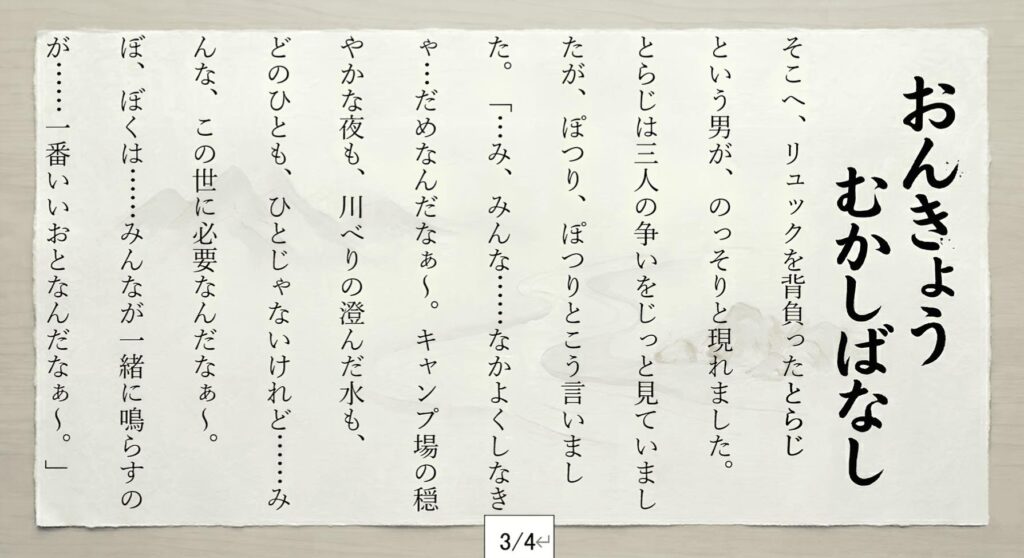 おんきょう
むかしばなし
そこへ、リュックを背負ったとらじ
という男が、のっそりと現れました。
とらじは三人の争いをじっと見ていまし
たが、ぽつり、ぽつりとこう言いまし
た。「…み、みんな……なかよくしなき
ゃ…だめなんだなぁ〜。キャンプ場の穏
やかな夜も、川べりの澄んだ水も、
どのひとも、ひとじゃないけれど……み
んな、この世に必要なんだなぁ〜。
ぼ、ぼくは……みんなが一緒に鳴らすの
が……一番いいおとなんだなぁ〜。」
3/4↵